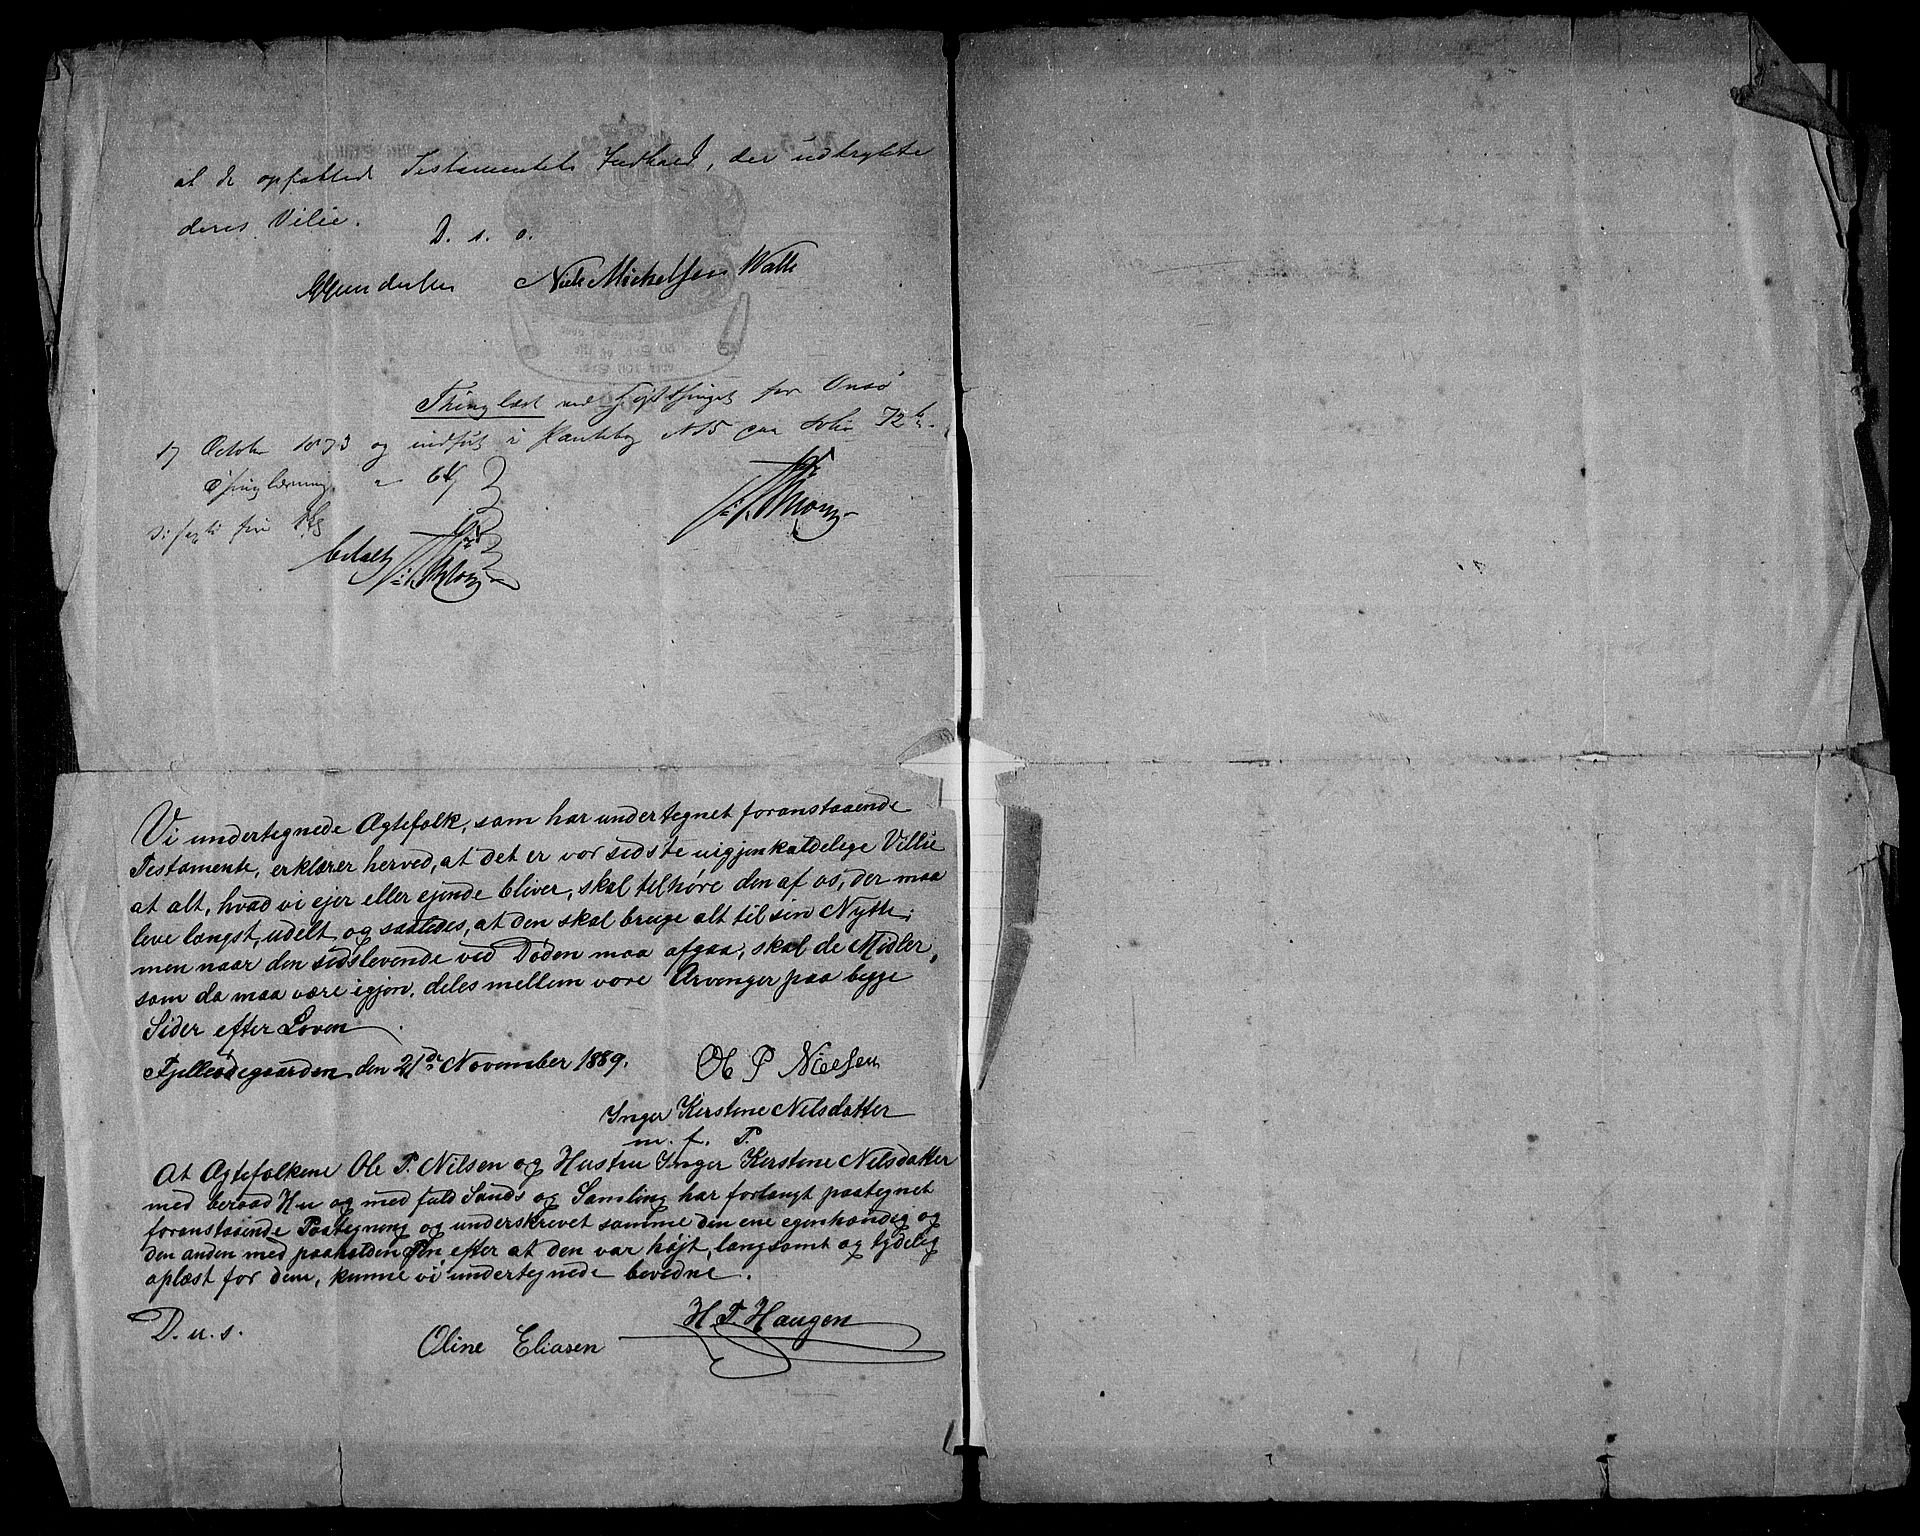 at de opfatted Testamentets Indhold, der udtrykte
deres Vilie.
D. s. o.
Gundersen Niels Michelsen Walle
Thinglæst ved Høstthinget for Onsø
17 October 1873 og indført i Pantebog N 15 paa folio 72
Thinglæsning
betalt
Vi undertegnede Ægtefolk, som har undertegnet foranstaaende
Testamente, erklærer herved, at det er vor sidste uigjenkaldelige Villie
at alt, hvad vi ejer eller ejende bliver, skal tilhøre den af os, der maa
leve længst, udelt og saaledes, at den skal bruge alt til sin Nytte;
men naar den sidslevende ved Døden maa afgaa, skal de Midler,
som da maa være igjen, deles mellem vore Arvenger paa begge
Sider efter Loven
Fjelleødegaarden den 21de November 1889.
Ole P Nielsen
Inger Kerstine Nilsdatter
m. f. P.
At Ægtefolkene Ole P. Nilsen og Hustru Inger Kerstine Nilsdatter
med beraad Hu og med fuld Sands og Samling har forlangt paategnet
foranstaaende Paategning og underskrevet samme den ene egenhændig og
den anden med paaholden Pen efter at den var højt, langsomt og tydelig
oplæst for dem, kunne vi undertegnede bevidne.
D. u. s.
H P Haugen
Oline Eliasen